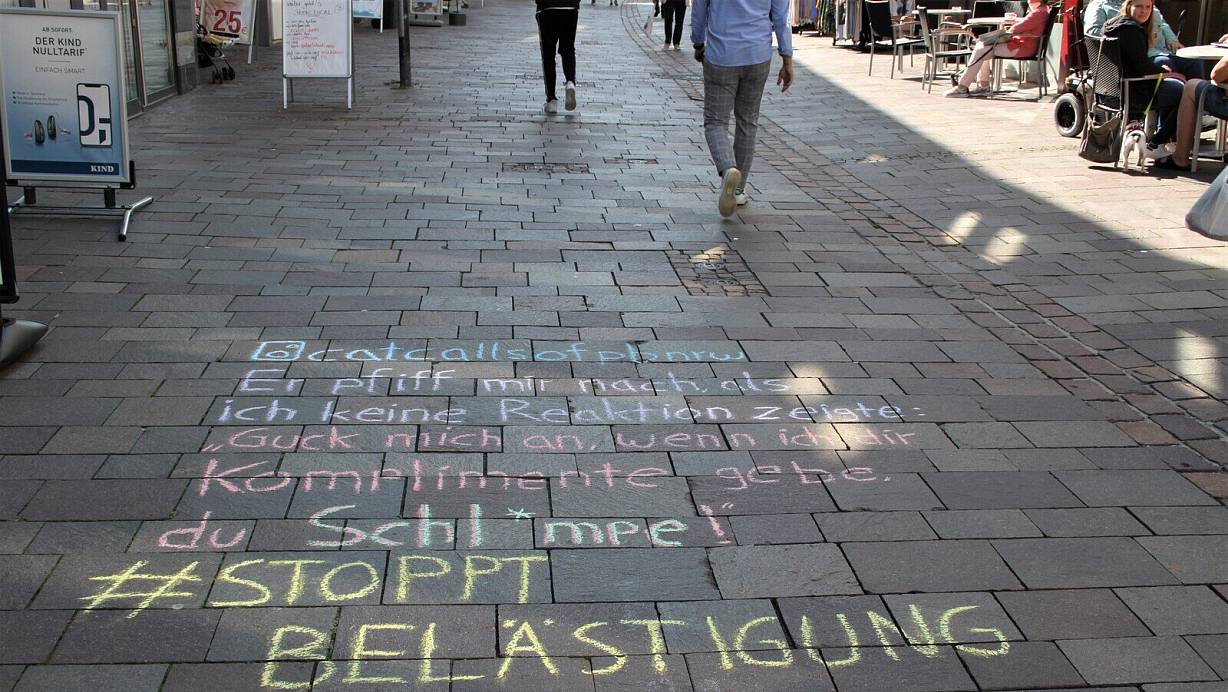 AB SOFORT:
DER KIND
NULLTARIF
EINFACH SMART.
KIND
25
@catcallsofpbnrw
Er pfiff mir nach, als
ich keine Reaktion zeigte:
„Guck mich an, wenn ich dir
Komplimente gebe,
du Schl*mpe!"
#STOPPT
BELÄSTIGUNG